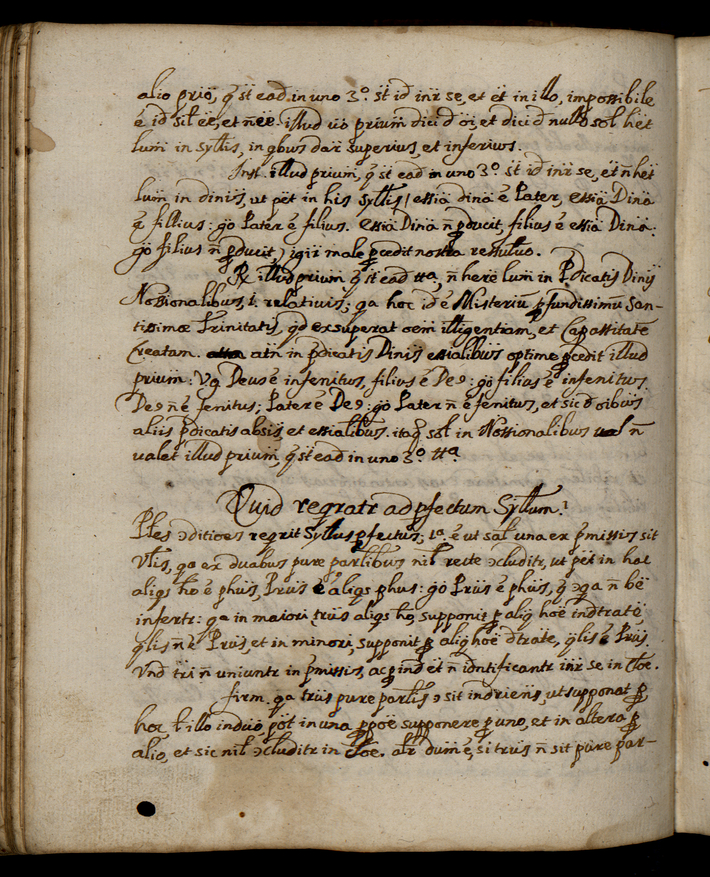 alio prio, q̃ st ead. in uno 3.º st id intr se, et ẽt in illo, impossibile
ẽ id sil ẽẽ, et ñ ẽẽ. illud uo prium dici d õi, et dici d nullo sol het
lum in Syllis, in qbus dar superius, et inferius.
Inst. illud prium, q̃ st ead in uno 3.º st id intr se, et ñ het
lum, in dinis, ut pet in his Syllis / essia dina ẽ Pater, essia Dina
ẽ fillius: go Pater ẽ filius. Essia Dina ñ pducit, filius ẽ essia Dina:
go filius ñ pducit) igir male pcedit nostra resoluo.
R illud prium q̃ st ead tta, ñ here lum in Pdicatis Dinis
Nossionalibus, i. relativis; qa hoc id ẽ Misteriu pfundissimu San-
tissimæ Trinitatis, qd exsuperat oem illigentiam, et Capassitatẽ
Creatam. atn in pdicatis Dinis essialibus optime pcedit illud
prium: Vg Deus ẽ infenitus, filius ẽ De9: go filius ẽ infenitus.
De9 ñ ẽ fenitus; Pater ẽ De9: go Pater ñ ẽ fenitus, et sic d oibus
aliis pdicatis absis, et essialibus. itaq sol in Nossionalibus ñ
valet illud prium, q̃ st ead in uno 3.º tta.
Quid regratr ad pfectum Syllum?
Ples ɔditioes regrit Syllus pfectus; 1ª. ẽ ut sal una ex pmissis sit
Vlis, qa ex duabus pure partlibus nil recte ɔcluditr, ut pet in hac
aliqs ho ẽ phus, Prus ẽ aliqs phus: go Prus ẽ phus, q̃ ɔqa ñ be
infertr: qa in maiori, trus aliqs ho, supponit p aliq hoe indtrate
qlis ñ ẽ Prus, et in minori, supponit p aliq hoe dtrate, qlis ẽ Prus.
Vnd tri ñ uniuntr in pmissis, ac pind et ñ idntificantr intr se in Cloe.
firm. qa trus pure partlis ɔ sit indriens, ut supponat p
hoc, l illo induo, pot in una ppoe supponere p uno, et in altera p
alio, et sic nil ɔcluditr in Cloe. alr dum ẽ, si trus ñ sit pure par-